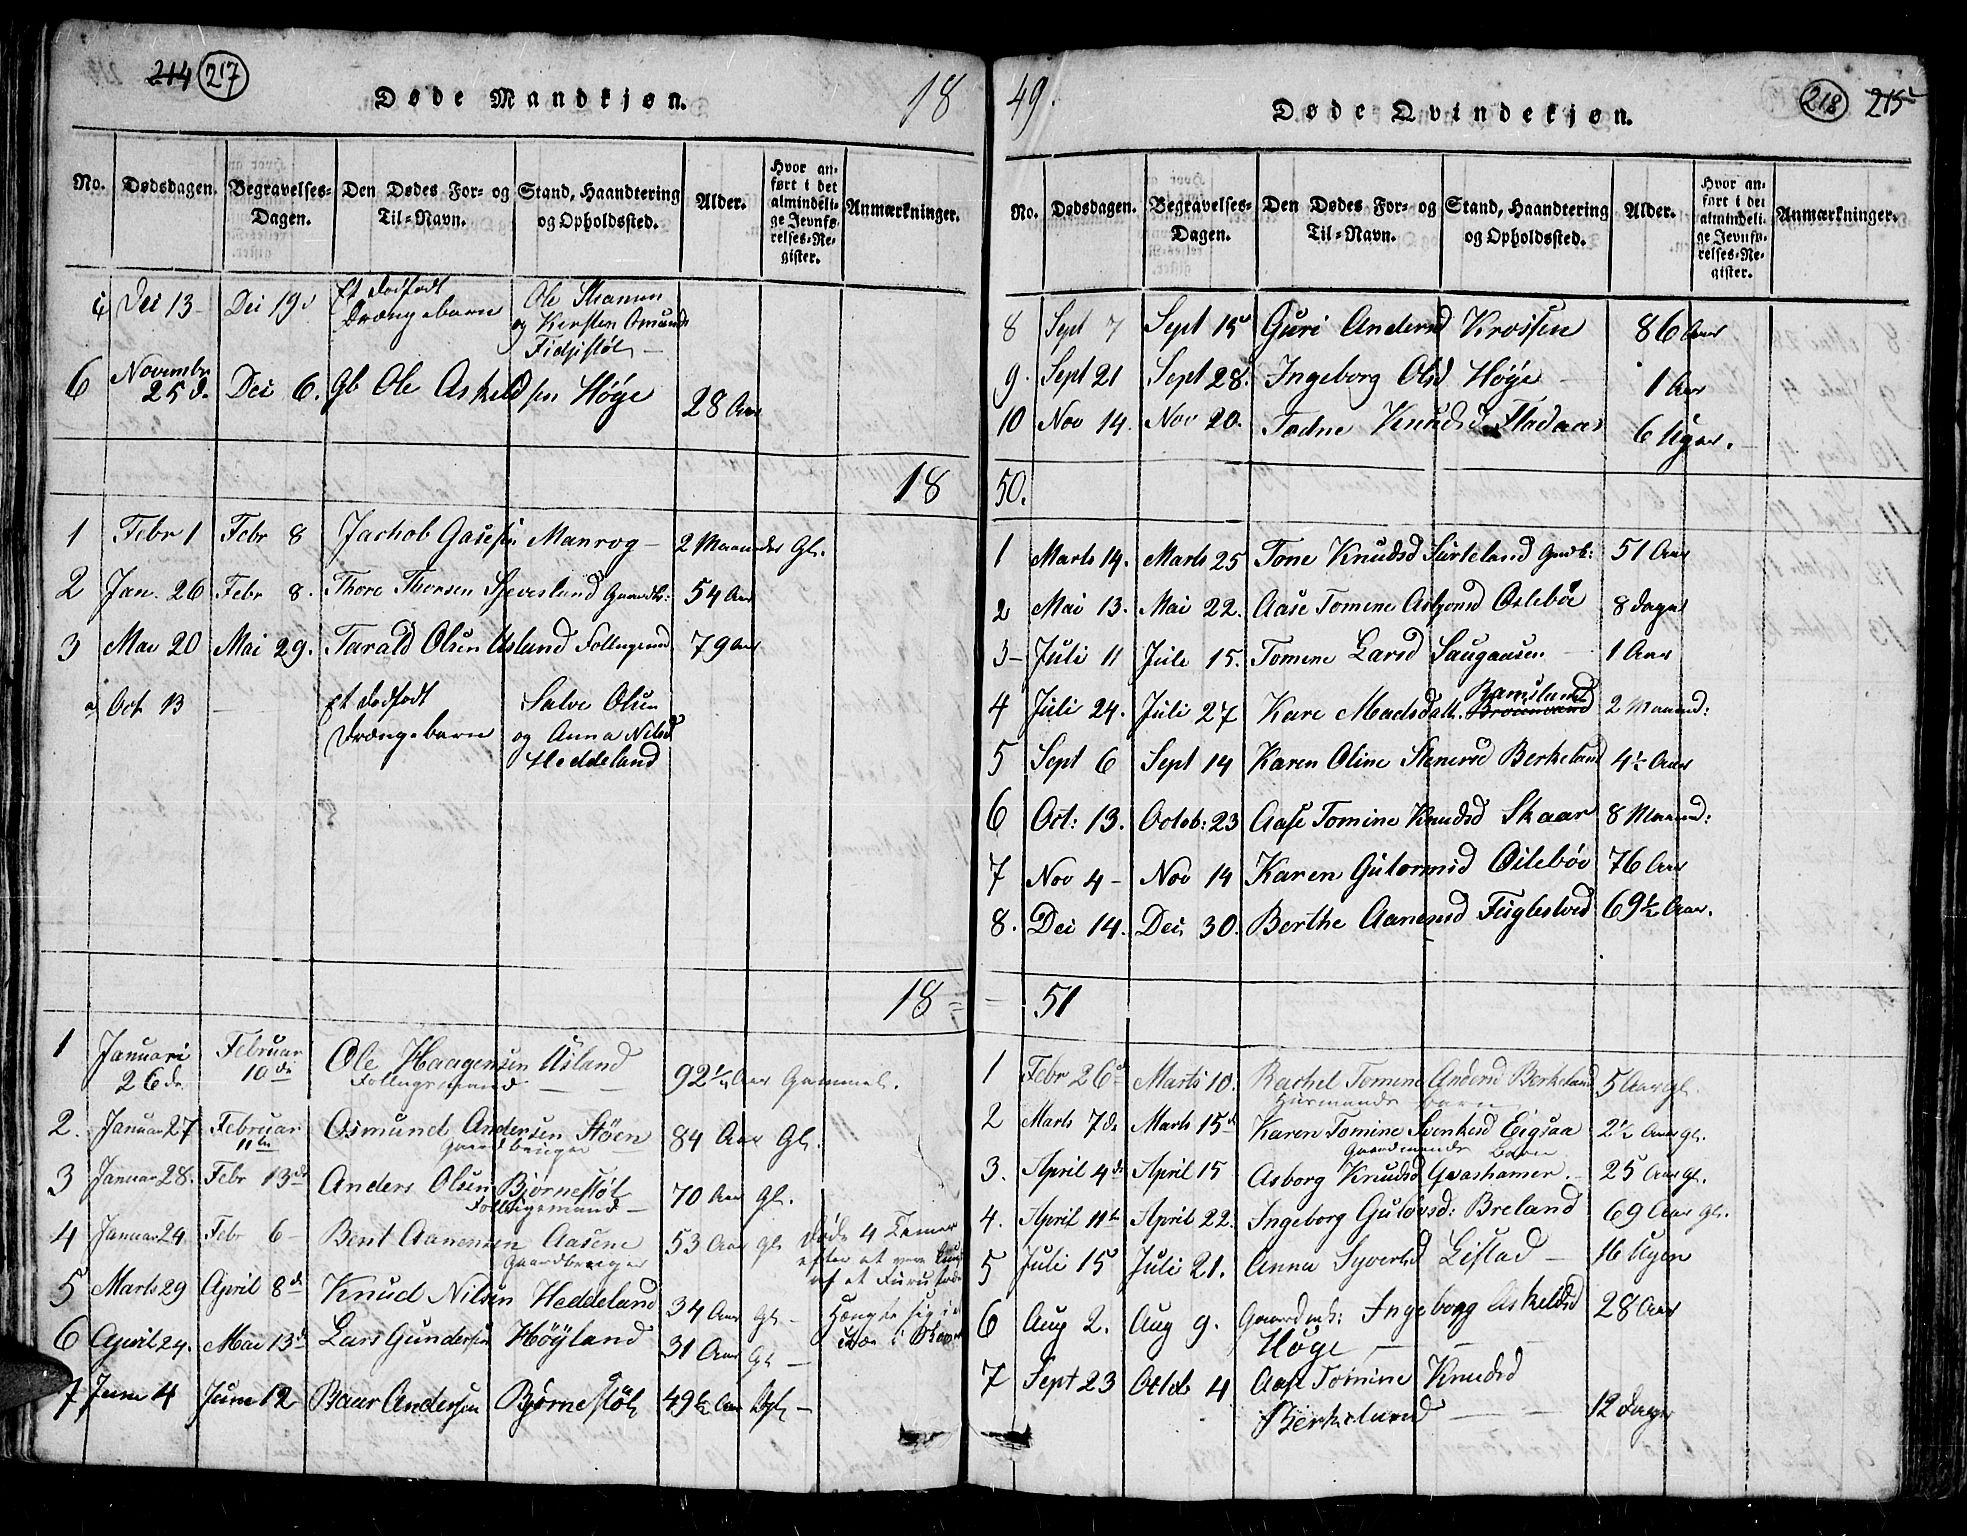 214 217
Døde Mandkjøn.
18
No.
Dødsdagen.
Begravelses-
Dagen.
Den Dødes For- og
Til-Navn.
Stand, Haandtering
og Opholdssted.
Alder.
Hvor an-
ført i det
almindeli-
ge Jevnfø-
relses-Re-
gister.
Anmærkninger.
Dei 13 Dei 19 Et dødfødt
Drængebarn
Ole
og Kirsten
6 Novembr
25 d. Dei 6. Ole Askeldsen Høÿe 28 Aar
18
1 Febr 1 Febr 8 Jachob Manrog 2 Maaneder Gl.
2 Jan. 26 Febr 8. Thore Thorsen Sjevesland Gaardb: 54 Aar
3 Mai 20 Mai 29. Tarald Olsen Usland 79 Aar
Oct 13 Et dødfødt
Drængebarn
Salve Olsen
og Anna Nilsd
Heddeland
18
1 Januari
26 de Februar
10 de Ole Haagensen Usland 92 1/4 Aar Gammel.
2. Januar 27 Februar
11te Osmund Andersen Støen 84 Aar Gl.
Gaardbruger
3 Januar 28. Febr 13d Anders Olsen Bjørnestøl 70 Aar Gl.
4 Januar 24 Febr 6 Bent Aanensen Aasene 53 Aar Gl døde 4 Timer
Gaardbruger
efter at være
af et
5 Marts 29 April 8d Knud Nilsen Heddeland 34 Aar Gl Hængte sig i
6 April 24. Mai 13d Lars Gundersen Høÿland 31 Aar Gl
7 Juni 4 Juni 12 Baar Andersen Bjørnestøl 49 1/2 Aar
49.
Døde Qvindekjøn.
218 215
No.
Dødsdagen.
Begravelses-
Dagen.
Den Dødes For- og
Til-Navn.
Stand, Haandtering
og Opholdssted.
Alder.
Hvor an-
ført i det
almindeli-
ge Jevnfø-
relses-Re-
gister.
Anmærkninger.
8 Sept 7 Sept 15 Guri Andersd Krossen 86 Aar
9. Sept 21 Sept 28. Ingeborg Olsd Høÿe 1 Aar
10 Nov 14. Nov 20. Todne Knudsd Flodaas 6 Uger.
50.
1 Marts 14. Marts 25 Tone Knudsd Surteland 51 Aar
2 Mai 13. Mai 22. Aase Tomine Osleboe 8 dage
3 Juli 11 Juli 15. Tomine Larsd Saugaasen 1 Aar
4 Juli 24. Juli 27 Kare Madsdatt. Ramsland 2 Maaned:
5 Sept 6 Sept 14 Karen Oline Stenersd Berkeland 4 1/2 Aar
6 Oct: 13. Octob: 23 Aase Tomine Knudsd Skaar 8 Maaned:
7 Nov 4 Nov 14 Karen Gutormsd Osleböe 76 Aar
8. Dei 14. Dei 30. Berthe Aanensd Fuglestved 69 1/2 Aar.
51
1 Febr 26d Marts 10. Rachel Tomine Andersd Berkeland 5 Aar gl.
Husmands barn
2 Marts 7de Marts 15d Karen Tomine Svenkesd Eigsaa 2 1/2 Aar gl.
Gaardmands Barn
3. April 4de April 15 Asborg Knudsd Qvashamer 25 Aar gl.
4. April 11te April 22. Ingeborg Gulovsd: Breland 69 Aar gl.
5 Juli 15 Juli 21. Anna Syvertsd Listad 16 Uger
6 Aug 2. Aug 9. Ingeborg Askeldsd 28 Aar
Høÿe
7 Sept 23 Octob 4 Aase Tomine Knudsd
Berkeland 12 dage